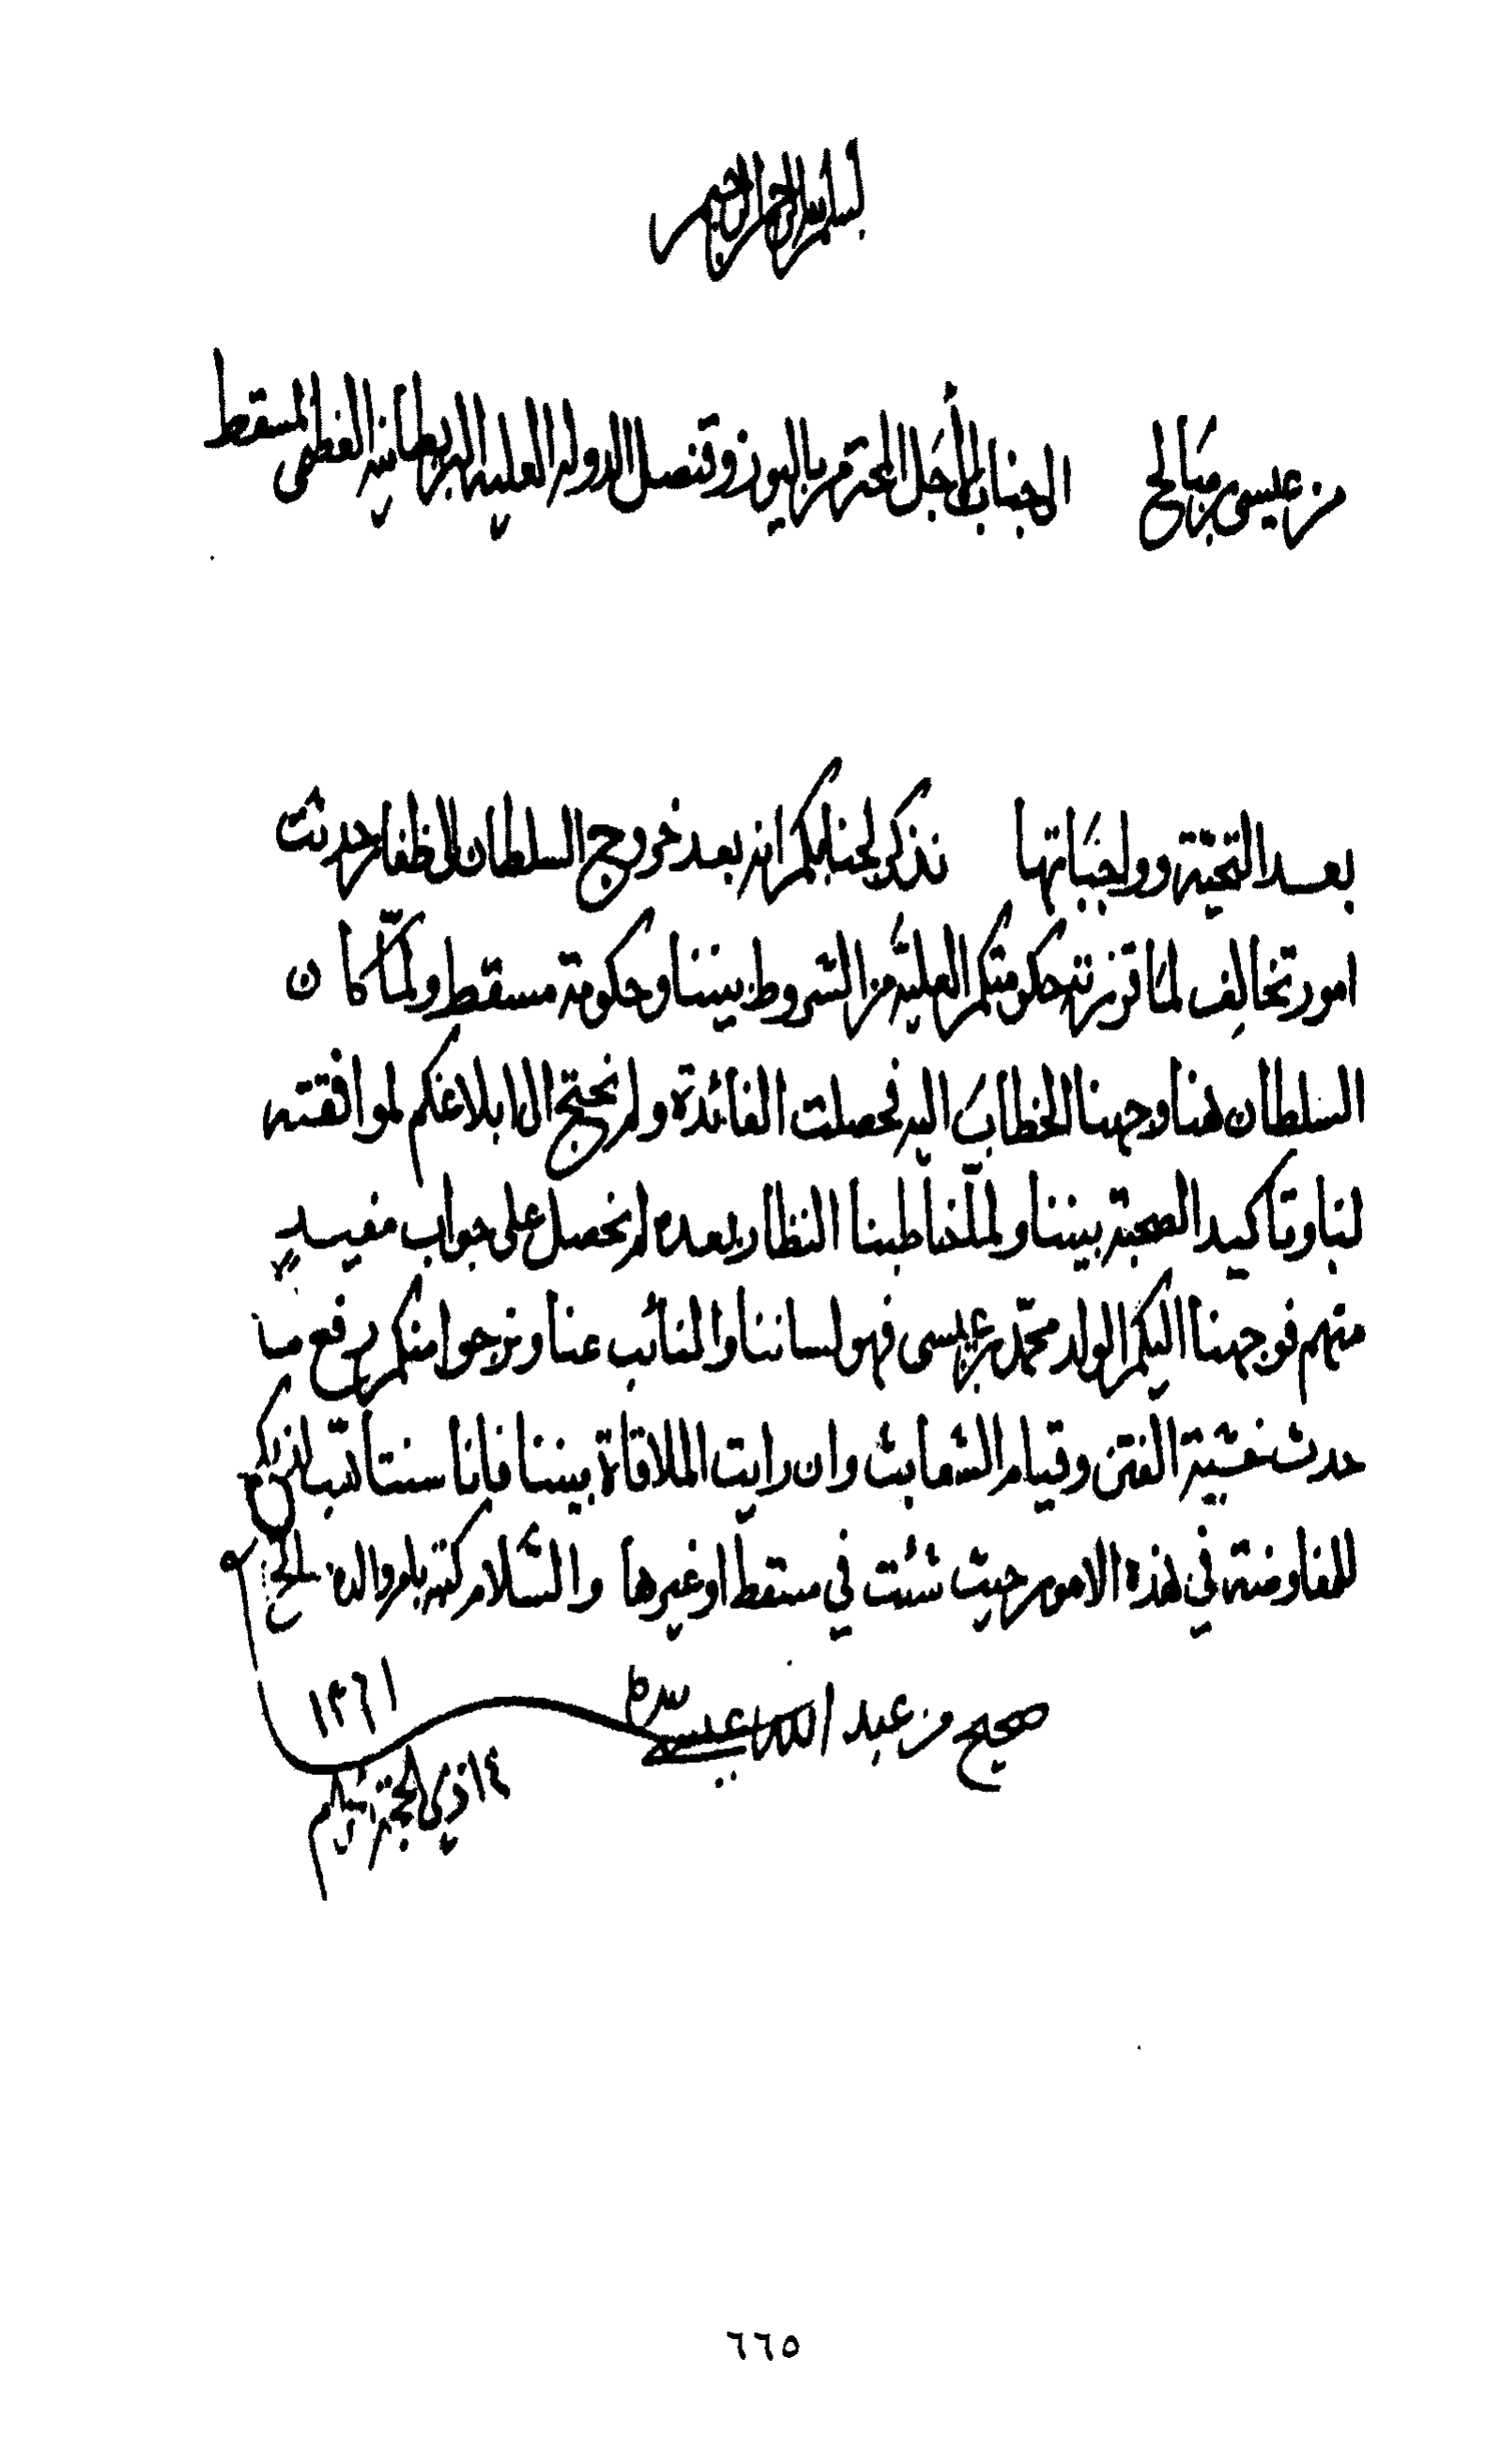 بسم الله الرحمن الرحيم
من عيسى بن صالح الى جناب الأجل المحترم باليوز وقنصل الدولة العلية البريطانية العظمى بمسقط
بعد التحية وواجباتها نذكر لجنابكم انه بعد خروج السلطان الى ظفار حدثت
امور تخالف لما قررته حكومتكم العلية من الشروط بيننا وحكومة مسقط ولمّا كان
السلطان هنا وجهنا الخطاب اليه فحصلت الفائدة ولم نحتج الى ابلاغكم لموافقته
لنا وتاكيد الصحبة بيننا ولمّا خاطبنا النظار بعده لم نحصل على جواب مفيد
منهم فوجهنا اليكم الولد محمّد بن عيسى فهو لساننا والنائب عنا ونرجوا منكم رفع ما
حدث خشية الفتن وقيام الشعابث وان رايت الملاقاة بيننا فانا سنتاهّب لذلك
للمفاوضة في هذه الامور حيث شئت في مسقط او غيرها والسّلام كتبه بامر والده
صحيح من عبد الله عيسى
١٣٤١
١٤ ذي الحجة
٦٦٥